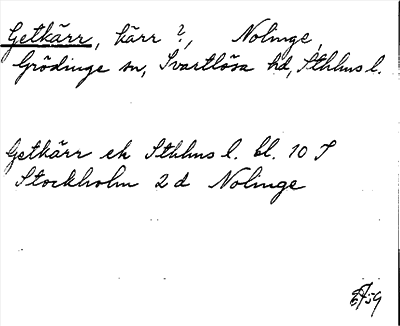 Getkärr, kärr ?, Nolinge,
Grödinge sn, Svartlösa hd, Sthlms l.
Getkärr ek Sthlms l. bl. 10 S
Stockholm 2 d Nolinge